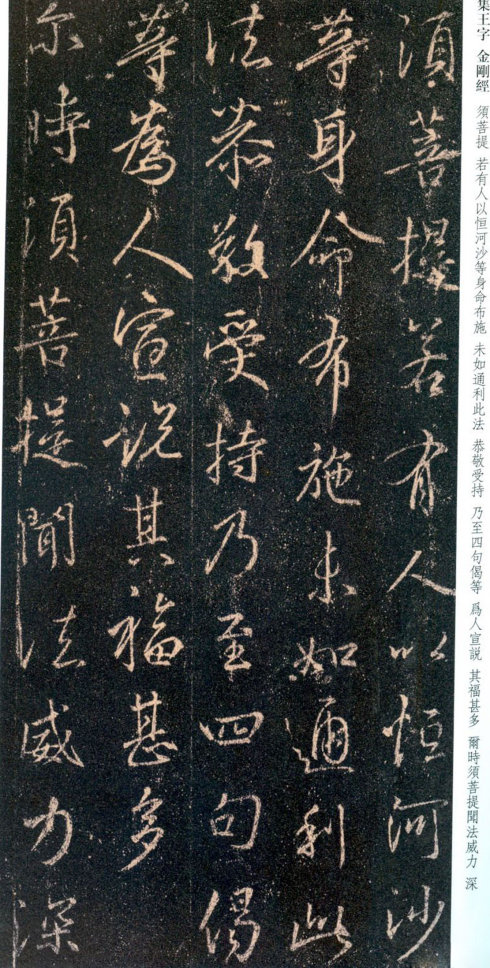 集王字 金剛經 須菩提 若有人以恒河沙等身命布施 未如通利此法 恭敬受持 乃至四句偈等 爲人宣説 其福甚多 爾時須菩提聞法威力 深
須菩提若有人以恒河沙
等身命布施未如通利此
法恭敬受持乃至四句偈
等為人宣説其福甚多
尓時須菩提聞法威力深